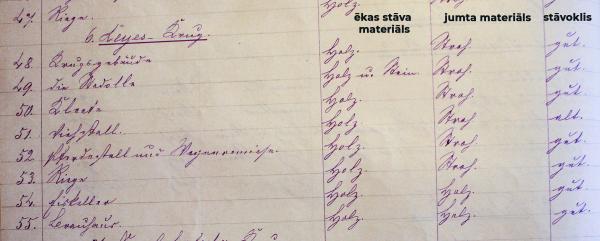 47. Riege. Holz.
ēkas stāva materiāls jumta materiāls stāvoklis
6. Leyes-Krug.
48 Krugsgebäude Holz. Stroh. gut.
49. die Stadolle Holz u. Stein. Stroh. gut.
50. Kleete Holz. Stroh. gut.
51. Viehstall. Holz Stroh alt.
52. Pferdestall und Wagenremise. Holz. Stroh. gut.
53. Riege Holz. Stroh. gut.
54. Eiskeller Holz. Holz. gut.
55. Brauhaus. Holz. Holz. gut.